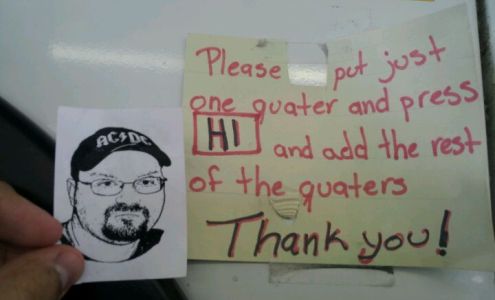 AC⚡DC
Please put just
one quater and press
HI and add the rest
of the quaters
Thank you!